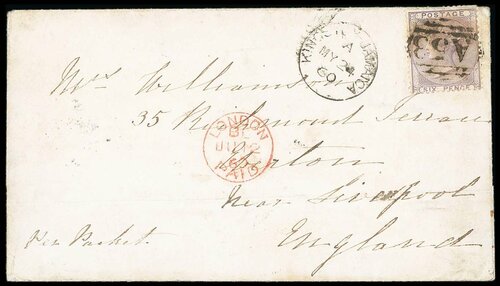 POSTAGE
A53
SIX PENCE
KINGSTON JAMAICA
A
MY 24
60
Mrs Williams
35 Richmond Terrace
Everton
Near Liverpool
England
Per Packet
LONDON
60
PAID